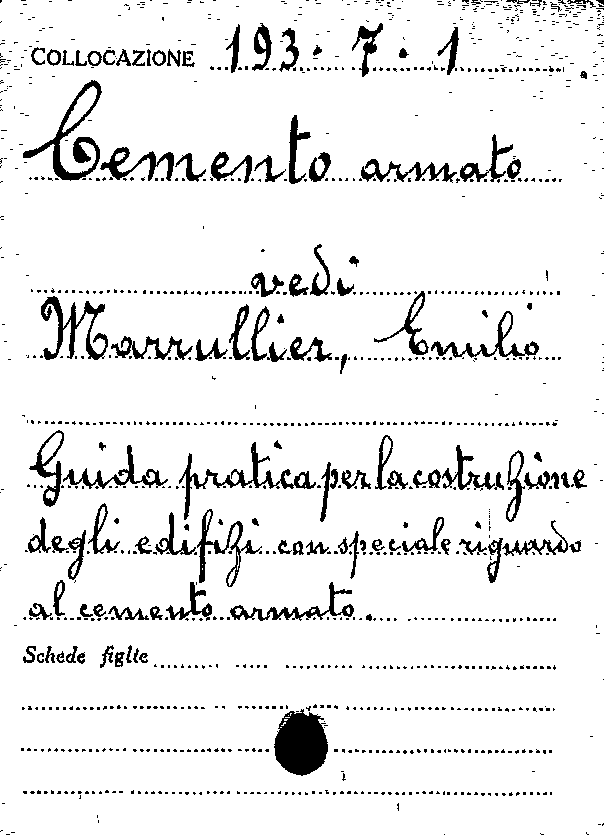 COLLOCAZIONE 193. 7. 1
Cemento armato
vedi
Marrullier, Emilio
Guida pratica per la costruzione
degli edifizi con speciale riguardo
al cemento armato.
Schede figlie